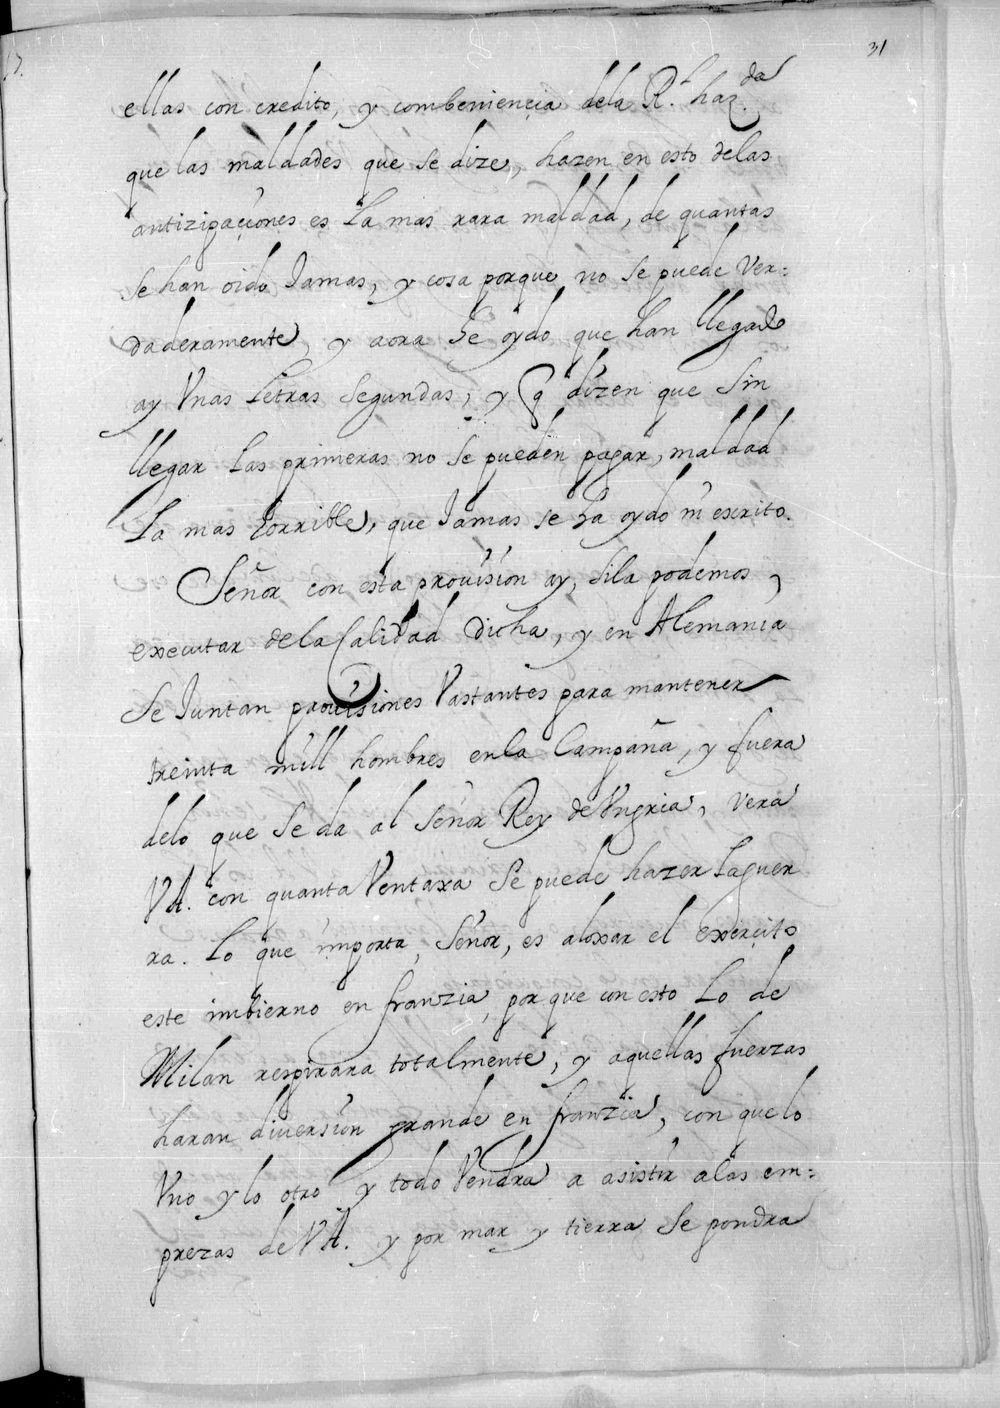 31
ellas con credito, y combeniencia dela R.l haz.da
que las maldades que se dize, hazen en esto delas
antizipaçiones es La mas rara maldad, de quantas
se han oido Jamas, y cosa porque no se puede Ver=
daderamente, y aora he oydo que han llegado
ay Vnas Letras segundas, y q dizen que sin
llegar Las primeras no se pueden pagar, maldad
La mas horrible, que Jamas se ha oydo ni escrito.
Señor con esta provision ay, sila podemos,
executar dela Calidad Dicha, y en Alemania
se Juntan provisiones Vastantes para mantener
treinta mill hombres enla Campaña, y fuera
delo que se da al señor Rey de Vngria, vera
VA. con quanta Ventaxa se puede hazer Laguer
ra. Lo que importa, Señor, es aloxar el exerçito
este imbierno en franzia, por que con esto Lo de
Milan respirara totalmente, y aquellas fuerzas
haran diversion grande en franzia, con quelo
Vno y lo otro y todo Vendra a asistir alas em=
prezas de VA. y por mar y tierra se pondra